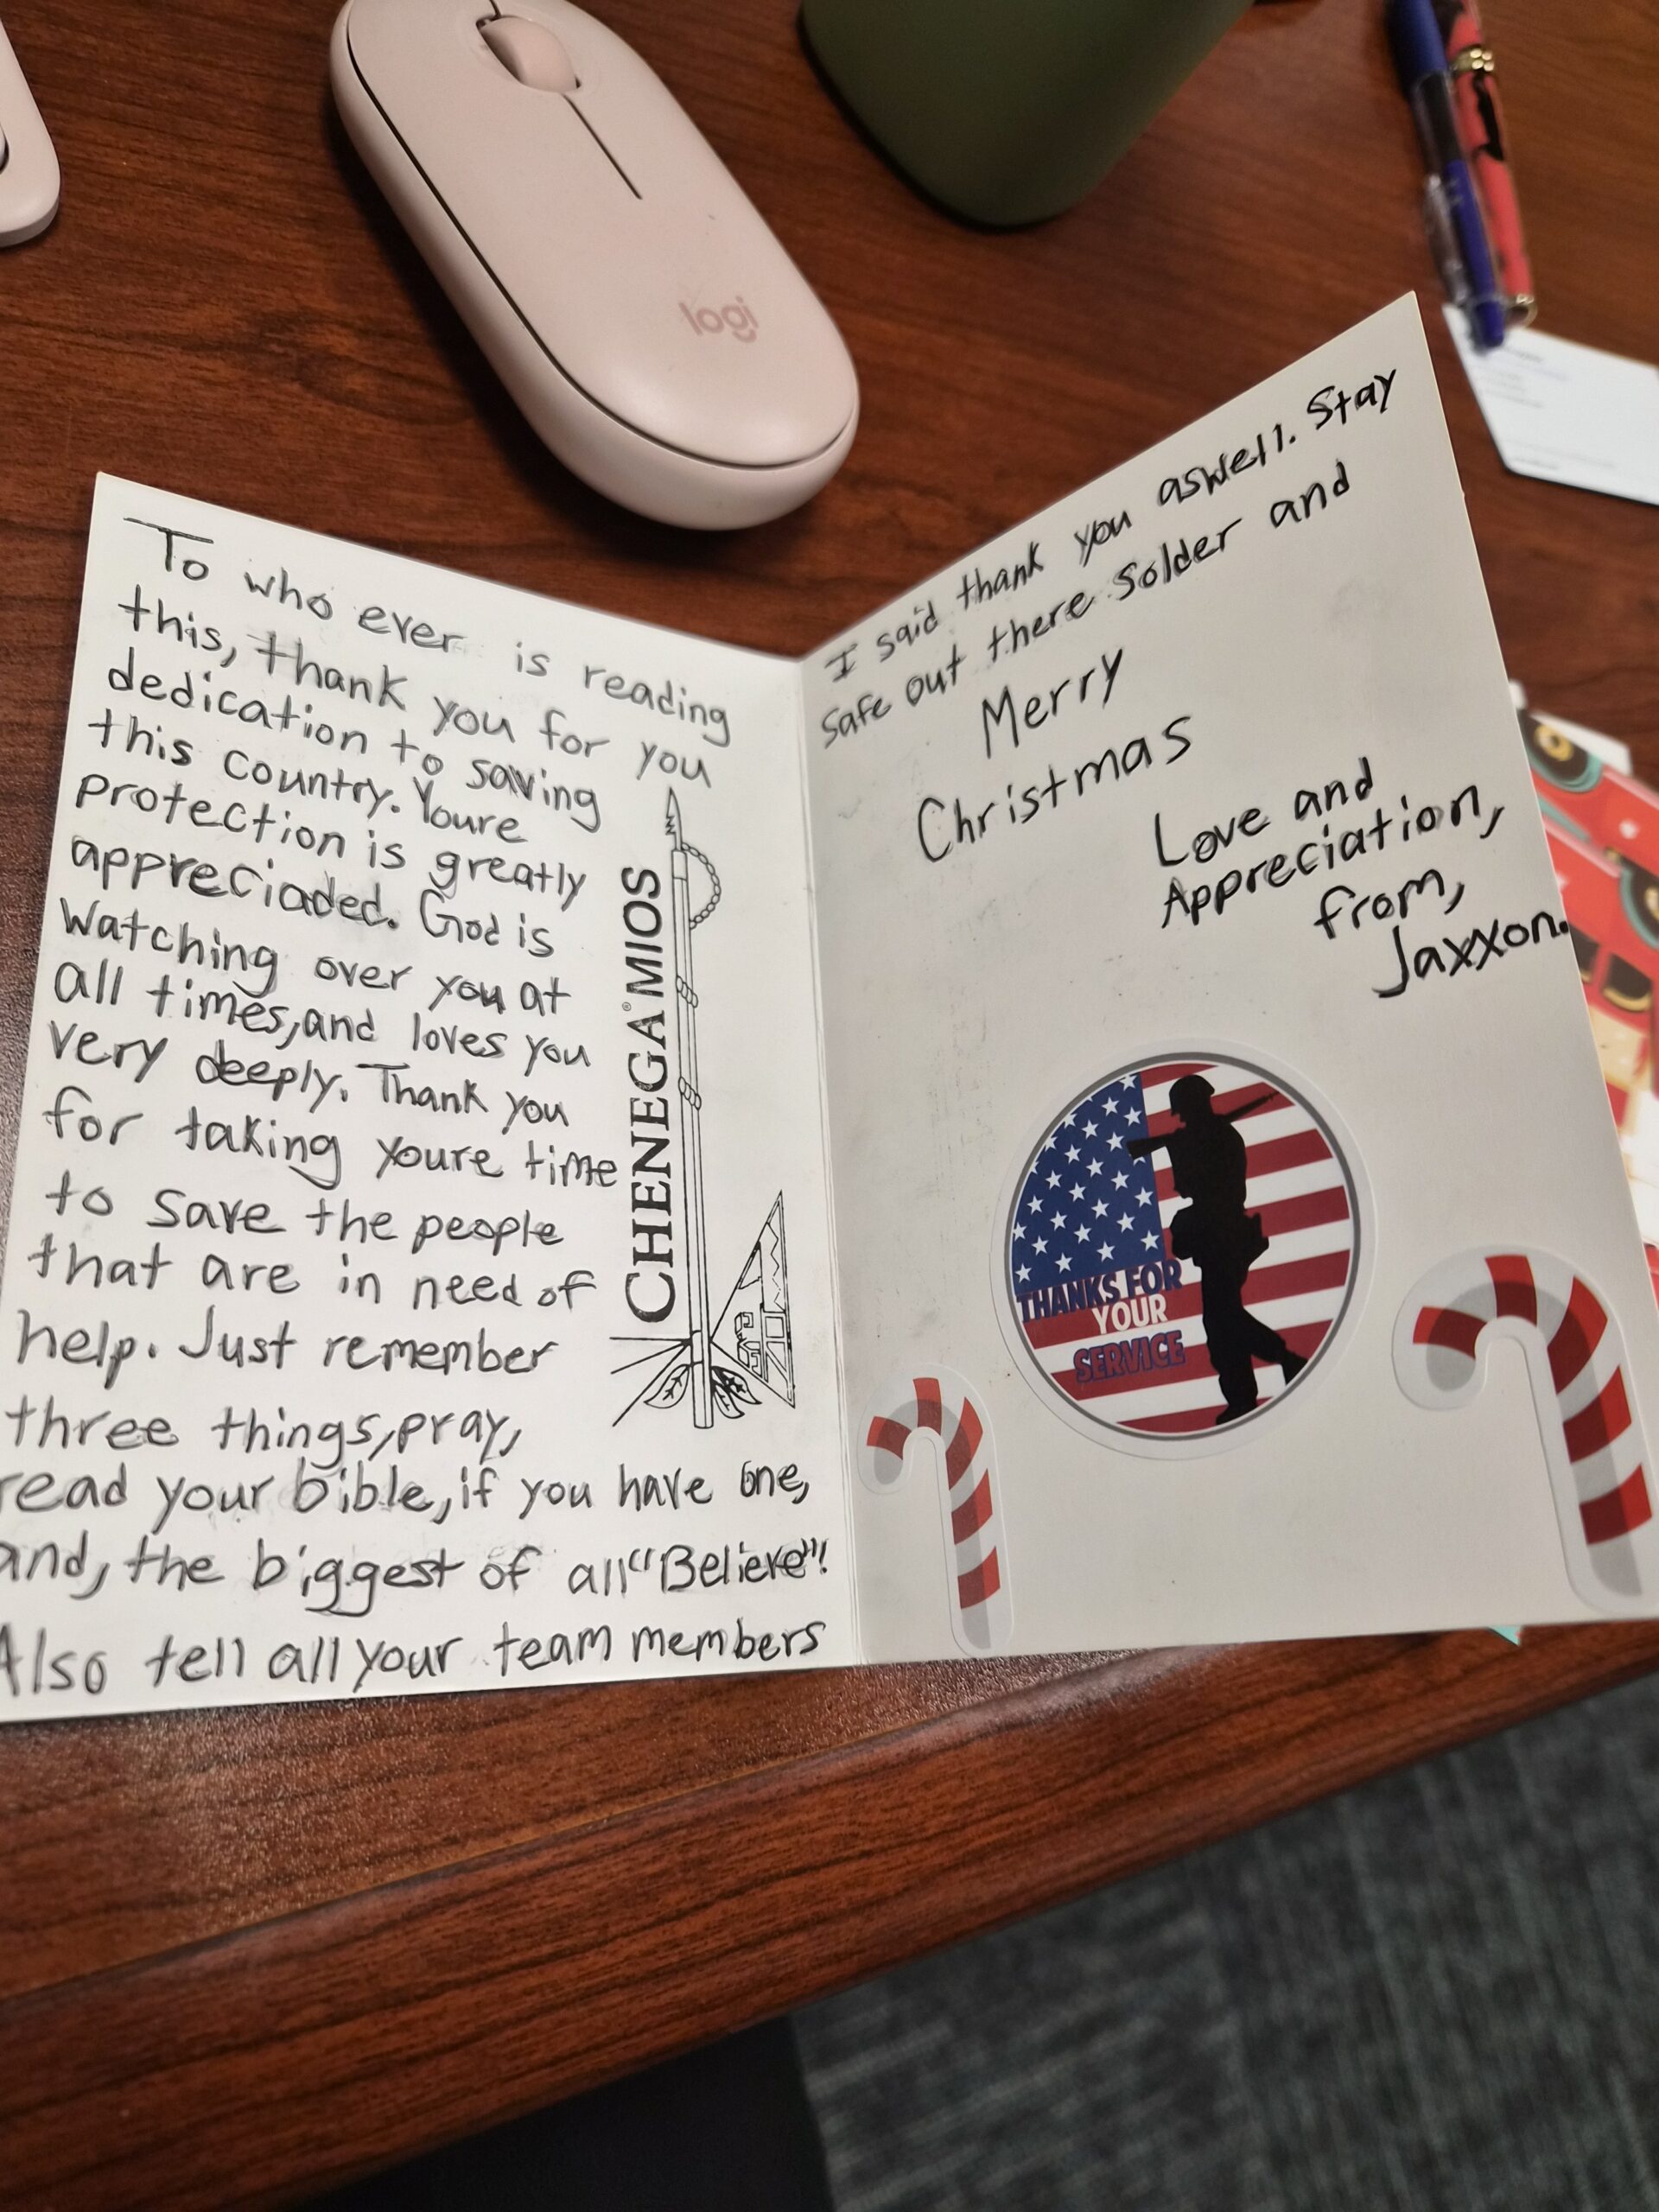 logi
To who ever is reading
this, thank you for you
dedication to saving
this country. Youre
protection is greatly
appreciaded. God is
watching over you at
all times, and loves you
very deeply. Thank you
for taking youre time
to save the people
that are in need of
help. Just remember
three things, pray,
read your bible, if you have one,
and, the biggest of all "Believe"!
Also tell all your team members
CHENEGA® MIOS
I said thank you aswell. Stay
safe out there Solder and
Merry
Christmas
Love and
Appreciation,
from,
Jaxxon.
THANKS FOR
YOUR
SERVICE